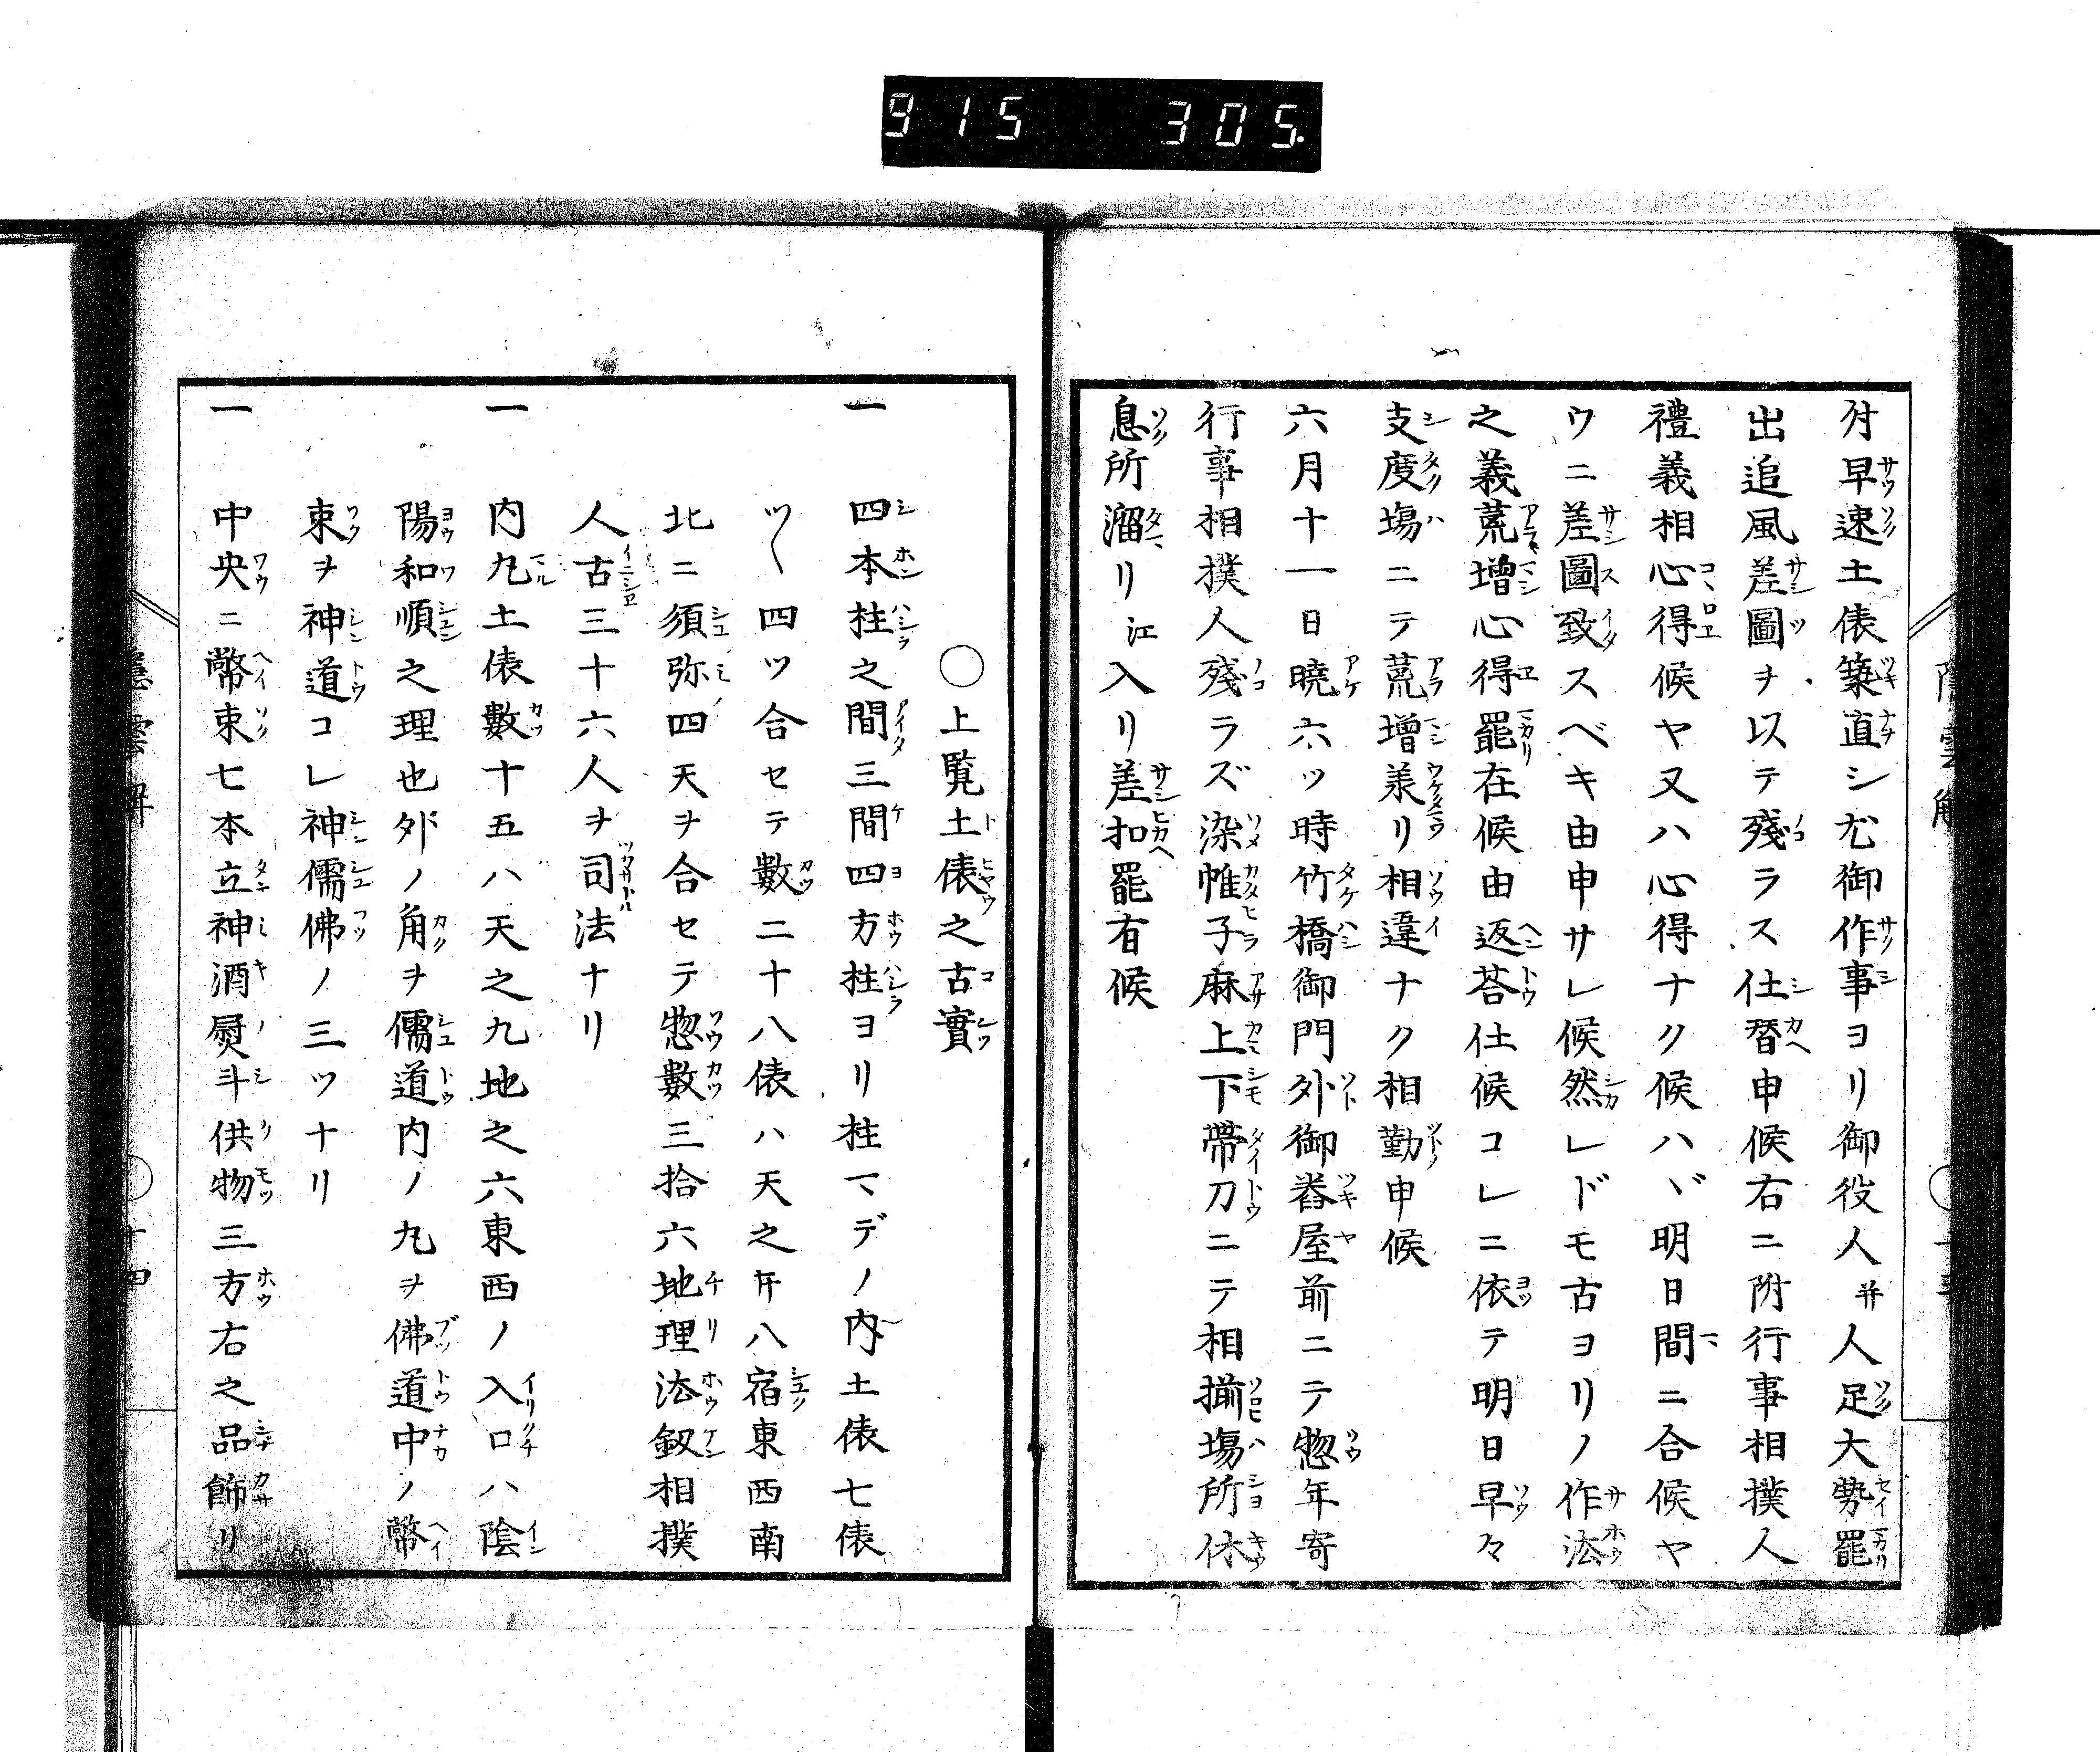 915 305.
付早速土俵築直シ尤御作事ヨリ御役人并人足大勢罷
出追風差圖ヲ以テ殘ラス仕替申候右ニ附行事相撲人
禮義相心得候ヤ又ハ心得ナク候ハヾ明日間ニ合候ヤ
ウニ差圖致スベキ由申サレ候然レドモ古ヨリノ作法
之義荒增心得罷在候由返荅仕候コレニ依テ明日早々
支度塲ニテ荒增羕リ相違ナク相勤申候
六月十一日曉六ッ時竹橋御門外御舂屋前ニテ惣年寄
行事相撲人殘ラズ染帷子麻上下帶刀ニテ相揃塲所休
息所溜リ江入リ差扣罷有候
〇上覧土俵之古實
一 四本柱之間三間四方柱ヨリ柱マデノ内土俵七俵
ツヽ四ツ合セテ數二十八俵ハ天之廿八宿東西南
北ニ須弥四天ヲ合セテ惣數三拾六地理法釼相撲
人古三十六人ヲ司法ナリ
一 内丸土俵數十五ハ天之九地之六東西ノ入口ハ陰
陽和順之理也外ノ角ヲ儒道内ノ丸ヲ佛道中ノ幣
束ヲ神道コレ神儒佛ノ三ツナリ
一 中央ニ幣束七本立神酒熨斗供物三方右之品飾リ
十四